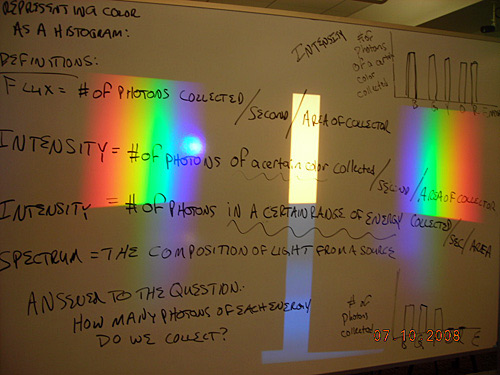 REPRESENTING COLOR
AS A HISTOGRAM:
DEFINITIONS:
FLUX = # OF PHOTONS COLLECTED / SECOND / AREA OF COLLECTOR
INTENSITY = # OF PHOTONS OF a certain color collected / SECOND / AREA OF COLLECTOR
INTENSITY = # OF PHOTONS IN A CERTAIN RANGE OF ENERGY COLLECTED / SEC / AREA
SPECTRUM = THE COMPOSITION OF LIGHT FROM A SOURCE
ANSWER TO THE QUESTION:
HOW MANY PHOTONS OF EACH ENERGY
DO WE COLLECT?
INTENSITY
# of
photons
of a
color
collected
# of
photons
collected
E
07.10.2008